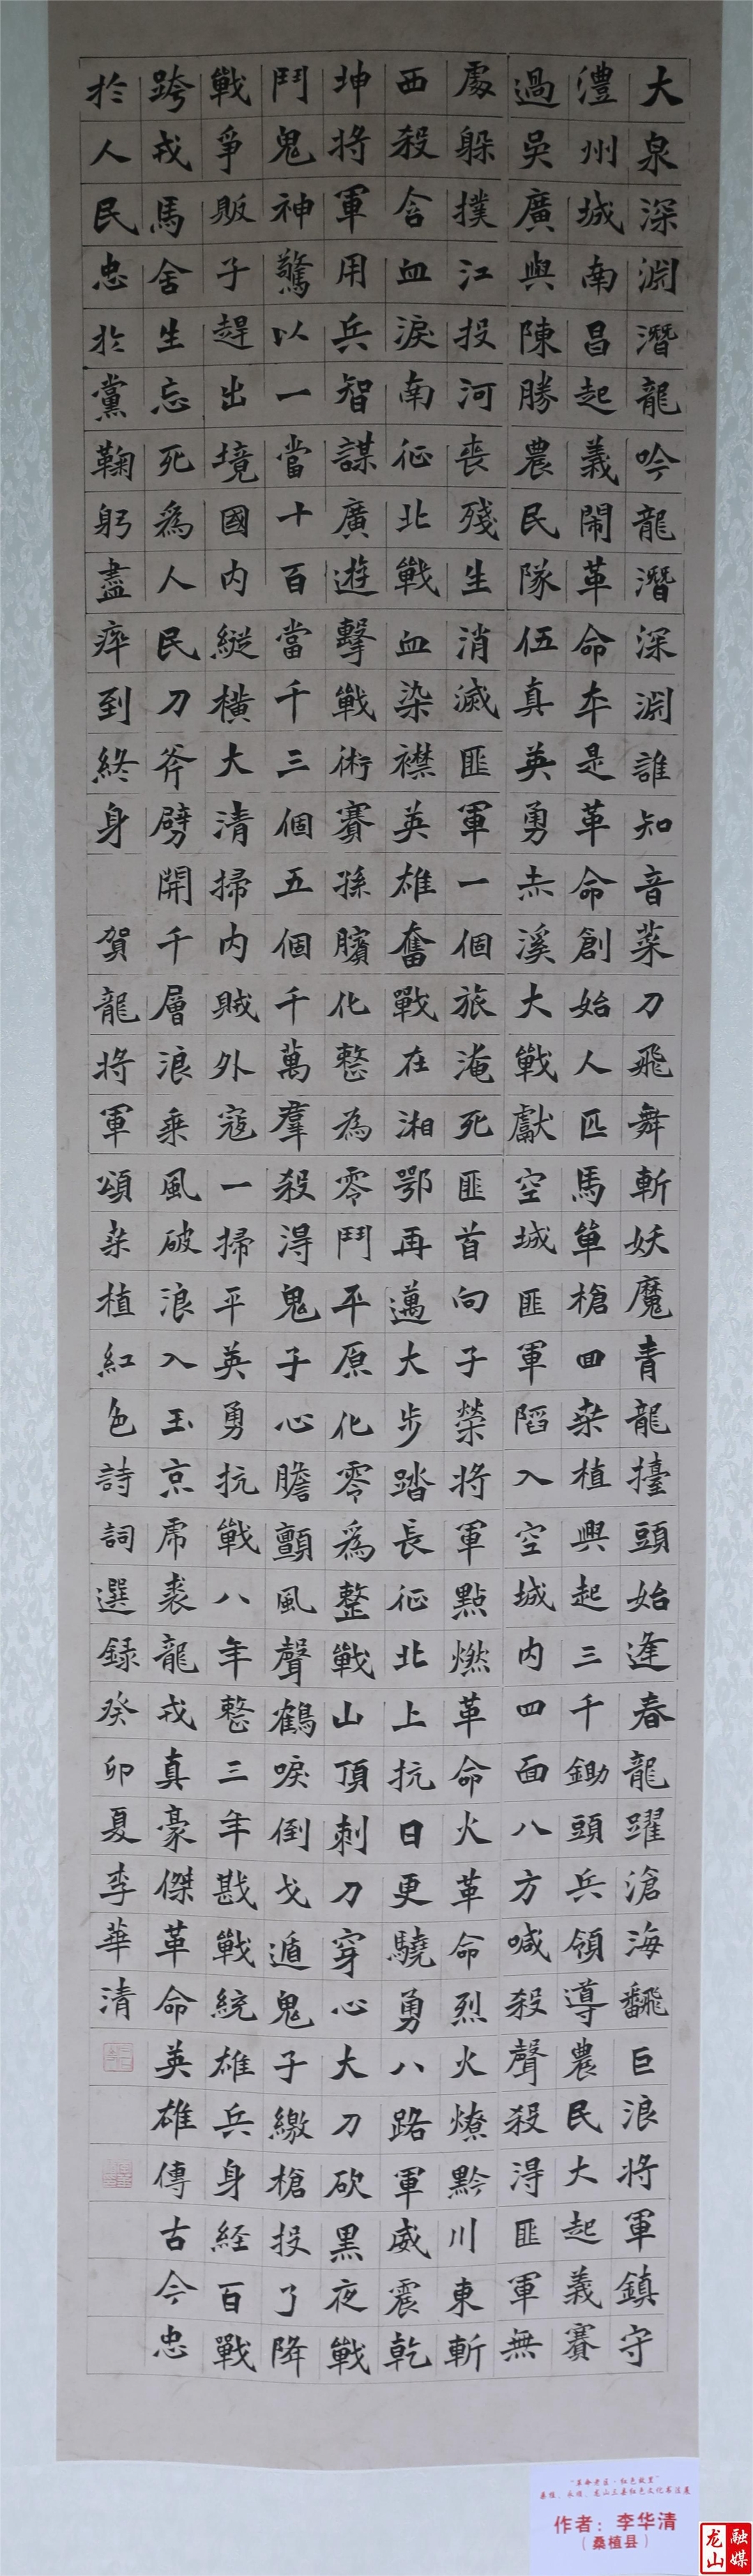 大泉深淵潛龍吟龍潛深淵誰知音菜刀飛舞斬妖魔青龍擡頭始逢春龍躍滄海飜巨浪將軍鎮守
澧州城南昌起義鬧革命本是革命創始人匹馬單槍回桒植興起三千鋤頭兵領導農民大起義賽
過吳廣與陳勝農民隊伍真英勇赤溪大戰獻空城匪軍陷入空城内四面八方喊殺聲殺得匪軍無
處躲撲江投河喪殘生消滅匪軍一個旅淹死匪首向子榮將軍點燃革命火革命烈火燎黔川東斬
西殺含血淚南征北戰血染襟英雄奮戰在湘鄂再邁大步踏長征北上抗日更驍勇八路軍威震乾
坤將軍用兵智謀廣遊擊戰術賽孫臏化整為零鬥平原化零爲整戰山頂刺刀穿心大刀砍黑夜戰
鬥鬼神驚以一當十百當千三個五個千萬羣殺得鬼子心膽顫風聲鶴唳倒戈遁鬼子繳槍投了降
戰爭販子趕出境國内縱橫大清掃内賊外寇一掃平英勇抗戰八年整三年戡戰統雄兵身経百戰
跨戎馬舍生忘死爲人民刀斧劈開千層浪乘風破浪入玉京虎裘龍戎真豪傑革命英雄傳古今忠
於人民忠於黨鞠躬盡瘁到終身 賀龍將軍頌桒植紅色詩詞選録癸卯夏李華清
“革命老区·红色故里”
桑植、永顺、龙山三县红色文化书法展
作者：李华清
（桑植县）
龙山
融媒